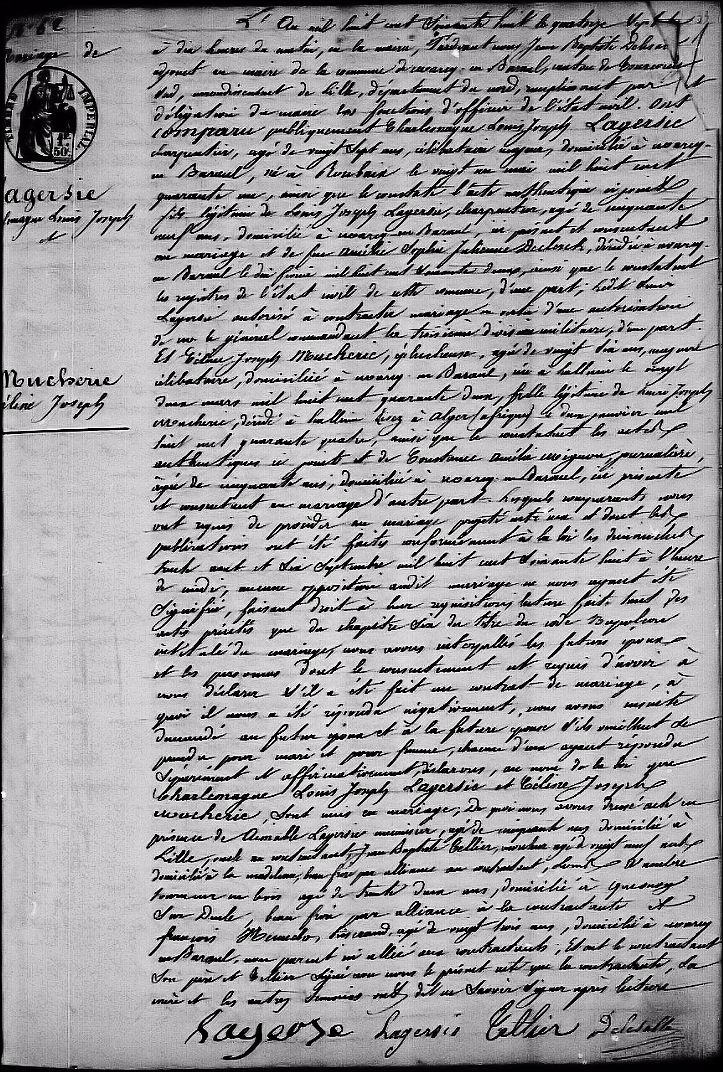 Mariage de
TIMBRE IMPERIAL
50
Lagersie
Charlemagne Louis Joseph
et
Mucherie
Céline Joseph
L'An mil huit cent soixante huit le quatorze Septembre
à dix heures du matin, à la mairie, Pardevant nous Jean Baptiste
adjoint au maire de la commune de Marcq en Barœul, canton de Tourcoing
Sud, arrondissement de Lille, département du nord, remplissant par
délégation du maire les fonctions d'officier de l'état civil. Ont
comparu publiquement Charlemagne Louis Joseph Lagersie
charpentier, agé de vingt sept ans, célibataire majeur, domicilié à Marcq-
en Barœul, né à Roubaix le vingt un mai mil huit cent
quarante un, ainsi que le constate l'acte authentique ci joint
fils légitime de Louis Joseph Lagersie, charpentier, agé de cinquante
neuf ans, domicilié à Marcq en Barœul, ici présent et consentant
au mariage et de feue Amélie Sophie Julienne Declerck, décédée à Marcq-
en Barœul le dix février mil huit cent soixante deux, ainsi que le constatent
les registres de l'état civil de cette commune, d'une part; ledit
Lagersie autorisé à contracter mariage en vertu d'une autorisation
de mr le général commandant la troisième division militaire, d'une part.
Et Céline Joseph Mucherie, éplucheuse, agée de vingt six ans, majeure
célibataire, domiciliée à Marcq en Barœul, née à halluin le vingt
deux mars mil huit cent quarante deux, fille légitime de Henri Joseph
Mucherie, décédé à Alger (afrique) le deux janvier mil
huit cent quarante quatre, ainsi que le constatent les actes
authentiques ci joints et de Constance Amélie journalière,
agée de cinquante ans, domiciliée à Marcq en Barœul, ici présente
et consentant au mariage d'autre part. Lesquels comparants nous
ont requis de procéder au mariage projeté entr'eux et dont les
publications ont été faites conformément à la loi les dimanches
trente aout et six Septembre mil huit cent soixante huit à l'heure
de midi, aucune opposition audit mariage ne nous ayant été
signifiée, faisant droit à leur requisition lecture faite tant des
actes précités que du chapitre six du titre du code Napoléon
intitulé du mariage, nous avons interpellés les futurs époux
et les personnes dont le consentement est requis d'avoir à
nous déclarer s'il a été fait un contrat de mariage, à
quoi il nous a été répondu négativement, nous avons ensuite
demandé au futur époux et à la future épouse s'ils veuillent se
prendre pour mari et pour femme, chacun d'eux ayant répondu
séparément et affirmativement, déclarons, au nom de la loi que
Charlemagne Louis Joseph Lagersie et Céline Joseph
Mucherie, sont unis en mariage, de quoi nous avons dressé acte en
présence de Aimable Lagersie menuisier, agé de cinquante ans domicilié à
Lille, oncle au contractant, Jean Baptiste Tellier, agé de vingt neuf ans
domicilié à la madeleine, beau frère par alliance au contractant,
tourneur en bois agé de trente deux ans, domicilié à Quesnoy
Sur Deule, beau frère par alliance à la contractante et
françois tisserand, agé de vingt trois ans, domicilié à Marcq
en Barœul, non parent ni allié aux contractants; Et ont le contractant
son père et Tellier signé avec nous le présent acte que la contractante, sa
mère et les autres témoins ont dit ne savoir signer après lecture
Lagersie Lagersie Tellier